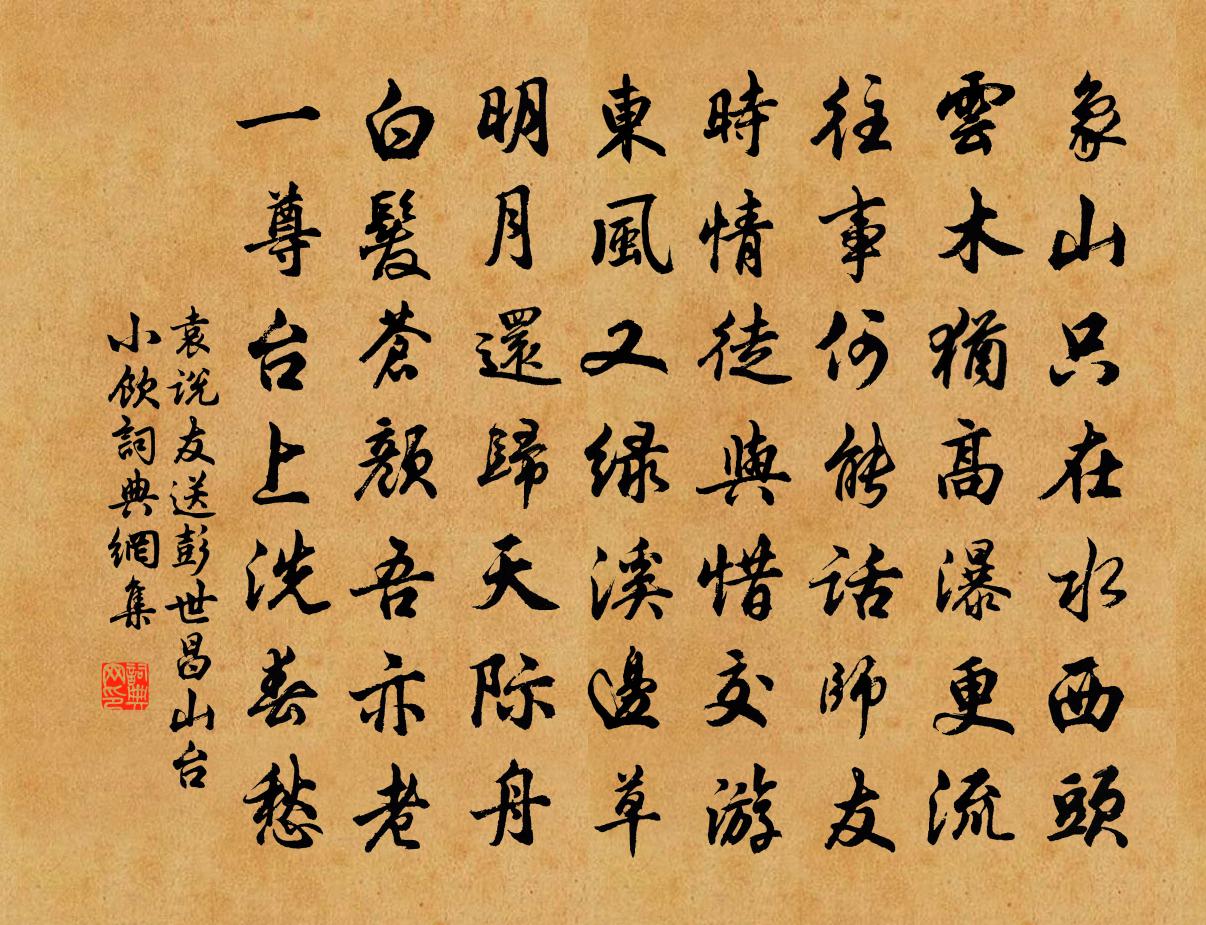 象山只在水西頭
雲木猶高瀑更流
往事何能話師友
時情徒與惜交游
東風又緑溪邊草
明月還歸天际舟
白髮蒼顏吾亦老
一尊台上洗春愁
袁说友送彭世昌山台
小飲詞典網集
詞典网印